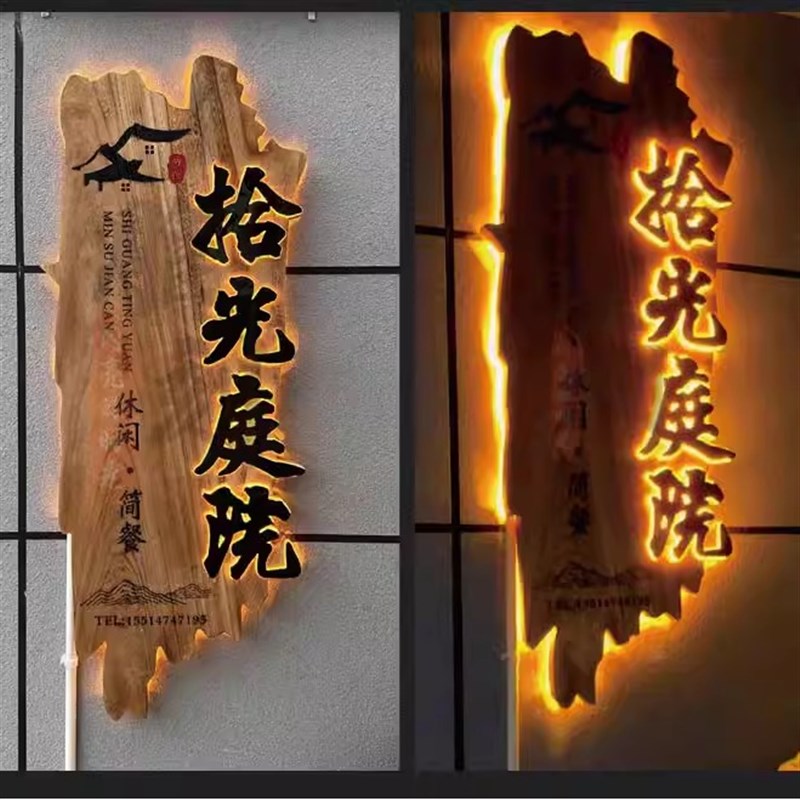 拾光庭院
SHI GUANG TING YUAN
MIN SU JIAN CAN
休闲·简餐
TEL:15514747195
拾光庭院
休闲·简餐
TEL:15514747195